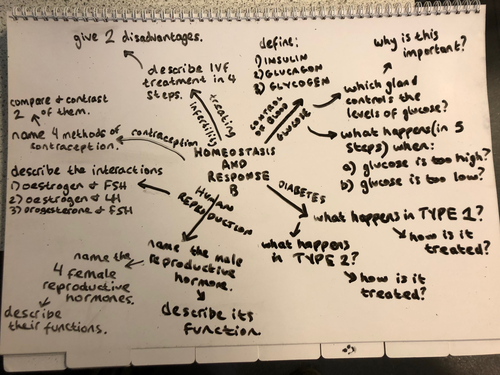 give 2 disadvantages.
describe IVF
treatment in 4
steps.
treating
infertility
define:
1) INSULIN
2) GLUCAGON
3) GLYCOGEN
CONTROL
OF BLOOD
GLUCOSE
why is this
important?
which gland
controls the
levels of glucose?
what happens (in 5
steps) when:
a) glucose is too high?
b) glucose is too low?
compare & contrast
2 of them.
name 4 methods of
contraception.
contraception
HOMEOSTASIS
AND
RESPONSE
B
describe the interactions
1) oestrogen & FSH
2) oestrogen & LH
3) progesterone & FSH
HUMAN
REPRODUCTION
DIABETES
what happens in TYPE 1?
how is it
treated?
what happens
in TYPE 2?
how is it
treated?
name the male
reproductive
hormone.
describe its
function
name the
4 female
reproductive
hormones.
describe
their functions.